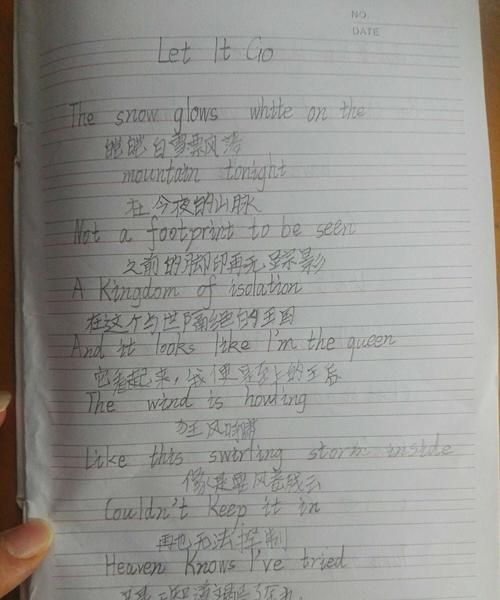 NO.
DATE
Let It Go
The snow glows white on the
皑皑白雪飘风
mountain tonight
在今夜的山脉
Not a footprint to be seen
之前的脚印再无踪影
A Kingdom of isolation
在这个与世隔绝的王国
And it looks like I'm the queen
它看起来,我便是至上的王后
The wind is howling
狂风呼啸
Like this swirling storm inside
像是暴风卷残云
Couldn't keep it in
再也无法控制
Heaven Knows I've tried